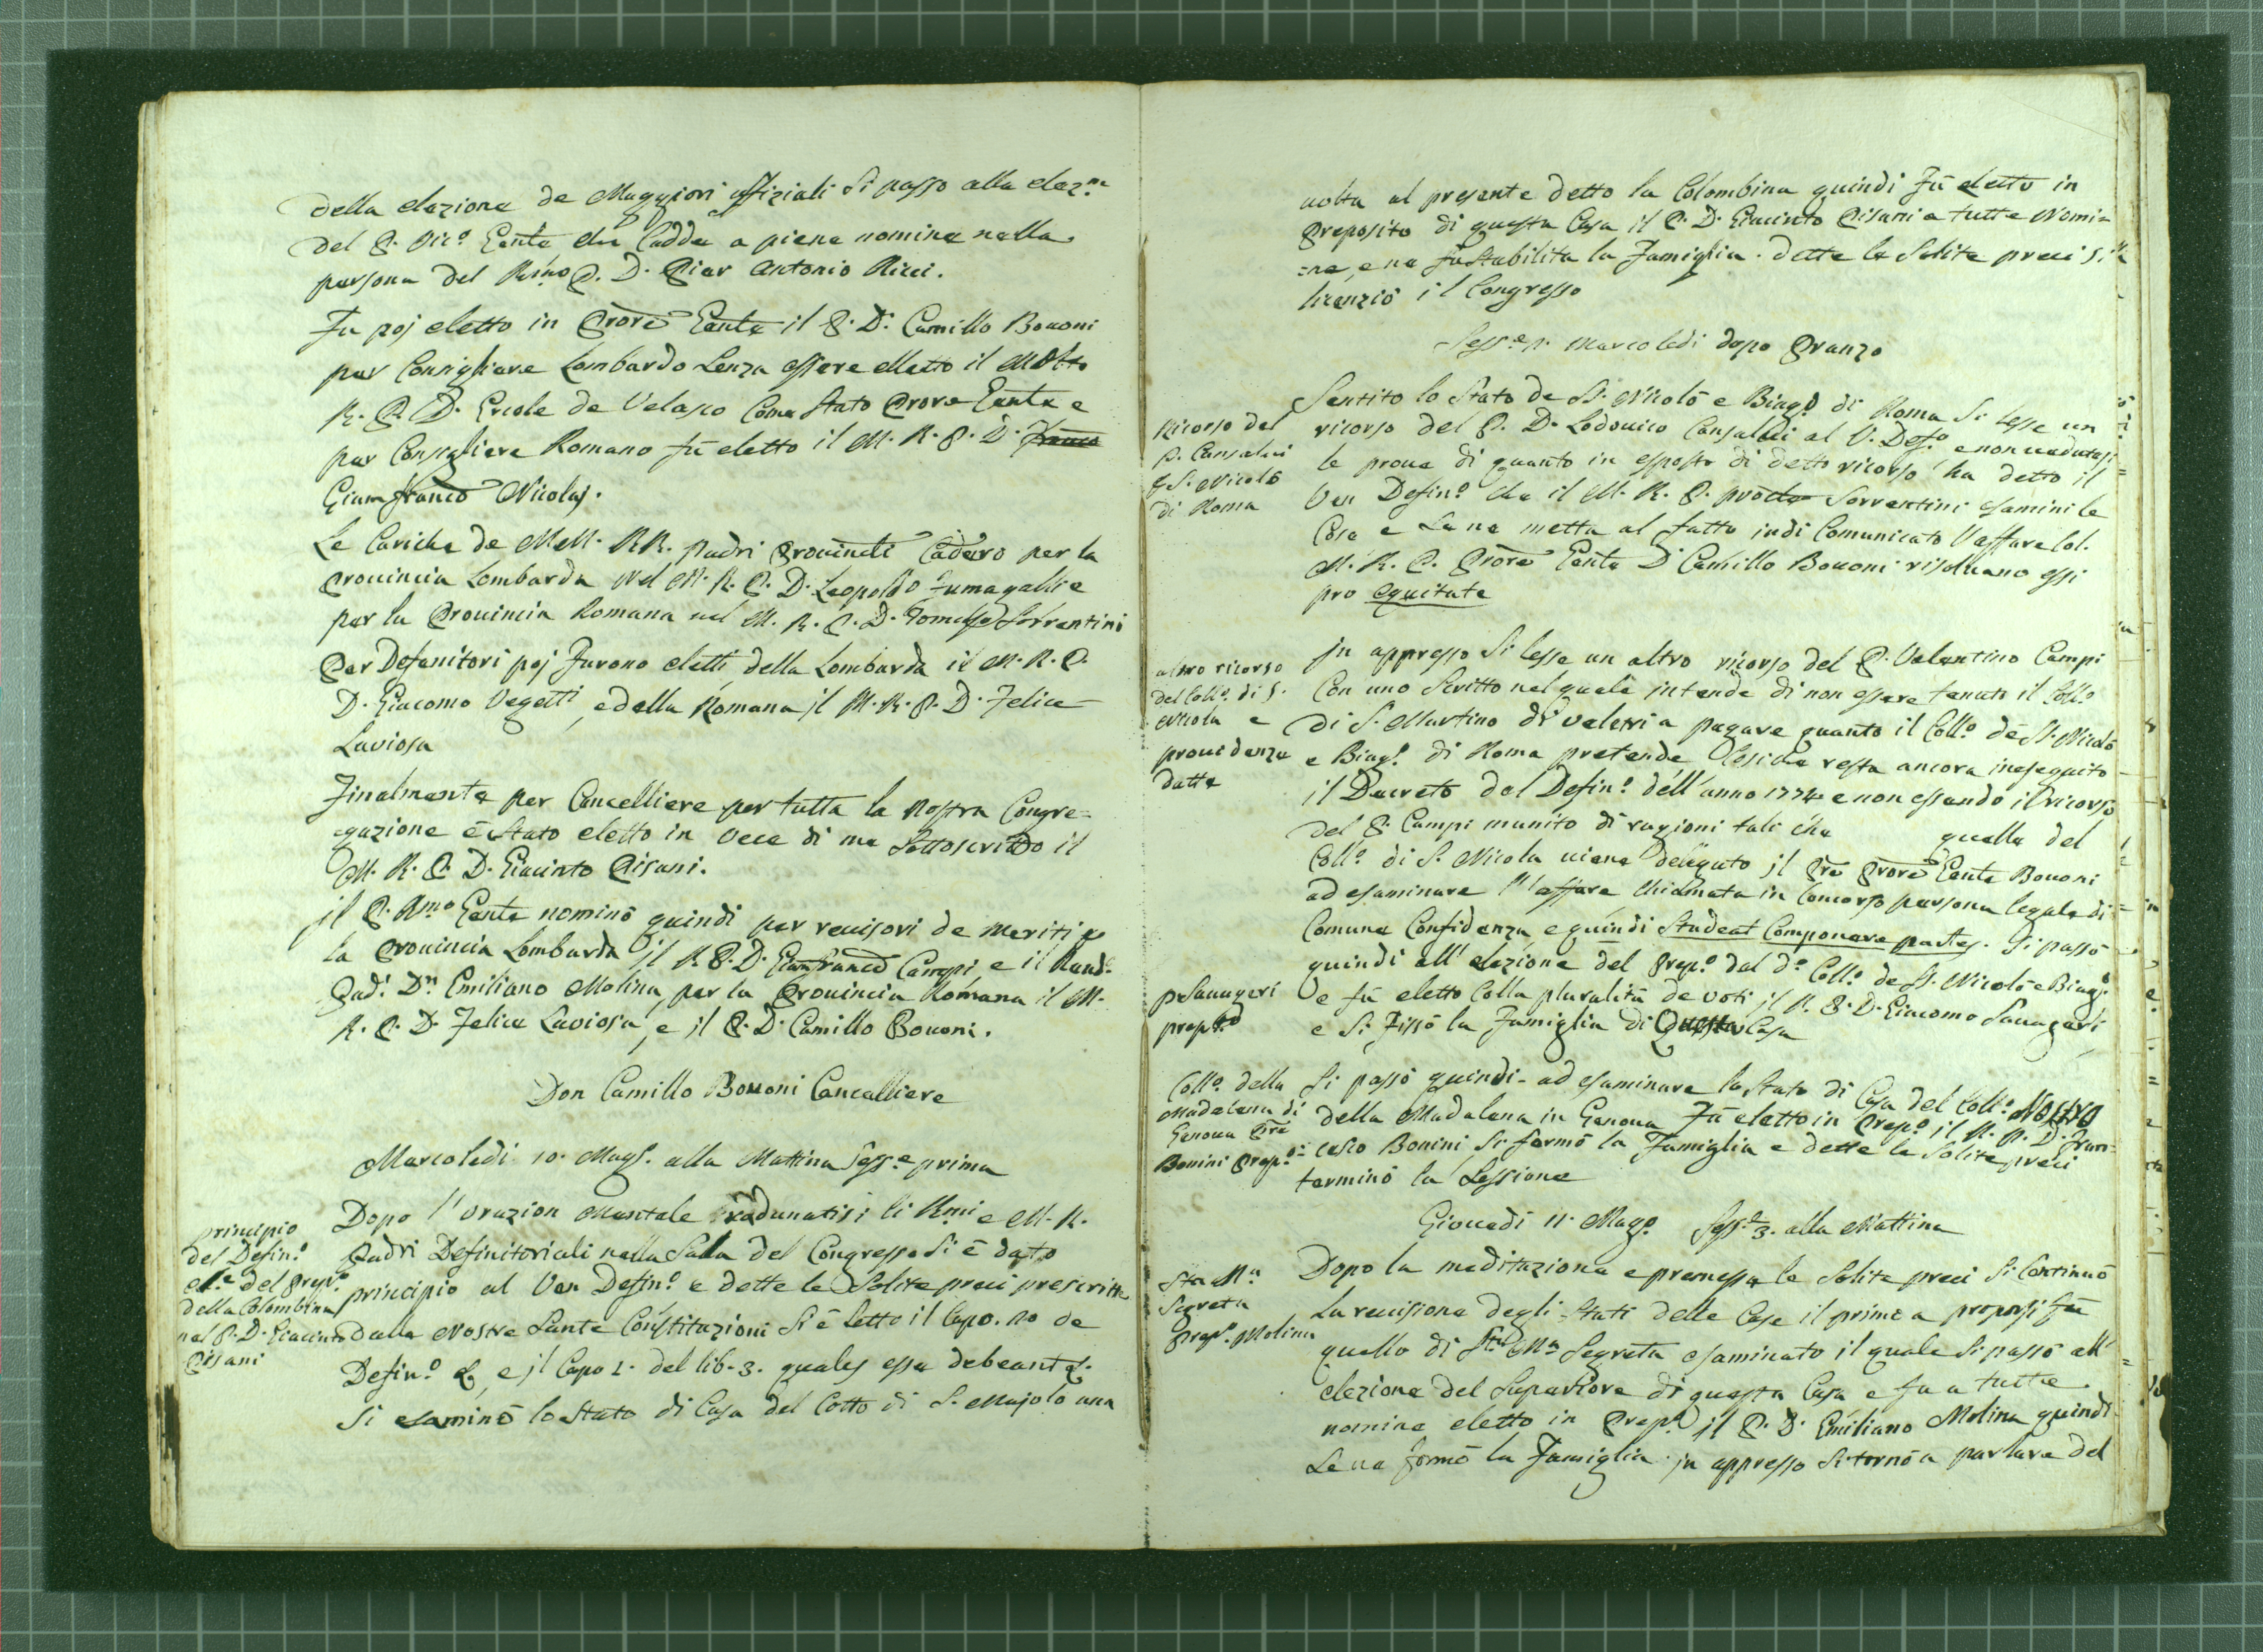 della elezione de Maggiori offiziali si passo alla elez.ne
del P. Vic.o Gen̄le che Cadde a piene nomine nella
persona del Rm̄o P. D. Pier Antonio Ricci.
Fu poj eletto in Prōre Gen̄le il P. D. Camillo Bovoni
per Consigliere Lombardo senza essere eletto il Molto
R. P. D. Ercole de Velasco Come stato Prore Gen̄le e
per Consigliere Romano fù eletto il M. R. P. D.
Gianfranco Nicolaj.
Le Cariche de MM. RR. padri Provinciali Cadero per la
Provincia Lombarda nel M. R. P. D. Leopoldo Fumagalli e
per la Provincia Romana nel M. R. P. D. Tomaso Sorrentini
Per Defenitori poj furono eletti della Lombarda il M. R. P.
D. Giacomo Vegetti, e della Romana jl M. R. P. D. Felice
Laviosa
Finalmente per Cancelliere per tutta la nostra Congre=
gazione è stato eletto in vece di me sottoscritto il
M. R. P. D. Giacinto Pisani.
jl P. Rmo Gen̄le nominò quindi per revisori de meriti p
la Provincia Lombarda jl R. P. D. Gianfranco Campi e il Revd.o
Pad. Dn Emiliano Molina, per la Provincia Romana il M.
R. P. D. Felice Laviosa, e jl P. D. Camillo Bovoni.
Don Camillo Bovoni Cancelliere
Marcoledi 10. Mag.o alla Mattina Sess.e prima
principio
del Defin.o
el.e del prep.o
della Colombina
nel P. D. Giacinto
Pisani
Dopo l'orazion Mentale radunatisi li Rmi e M. R.
Padri Definitoriali nella Sala del Congresso si è dato
principio al Ven Defin.o e dette le solite preci prescritte
dalle Nostre Sante Constituzioni si è letto il Capo. 20 de
Defin.o &, e jl Capo 2. del lib. 3. quales esse debeant &.
Si esaminò lo stato di Casa del Cotto di S. Majolo una
volta al presente detto la Colombina quindi fù eletto in
Preposito di questa Casa il P. D. Giacinto Pisani a tutte Nomi=
=ne, e ne fu stabilita la Famiglia. dette le solite preci si
licenziò il Congresso
Sess.e p. Marcoledi dopo Pranzo
Ricorso del
P. Cansalvi
S. Nicolò
di Roma
Sentito lo stato de SS. Nicolò e Biag.o di Roma si lesse un
ricorso del P. D. Lodovico Cansalvi al V. Def.o, e non vedutesi
le prove di quanto in esposto di detto ricorso ha detto il
Ven Defin.o che il M. R. P. Sorrentini esamini le
Cose e se ne metta al fatto indi Comunicato l'affare Col.
M. R. P. Prōre Gen̄le D. Camillo Bovoni risolvano essi
pro equitate
altro ricorso
del Coll.o di S.
Nicola e
providenze
datte
jn appresso si lesse un altro ricorso del P. Valentino Campi
Con uno Scritto nel quale intende di non essere tenuto il Coll.o
di S. Martino di Veletri a pagare quanto il Coll.o de SS. Nicolò
e Biag.o di Roma pretende Cosiche resta ancora ineseguito
il Decreto del Defin.o dell'anno 1774 e non essendo il ricorso
del P. Campi munito di ragioni tali che quelle del
Coll.o di S. Nicola viene delegato jl Pre Prōre Gen̄le Bovoni
ad esaminare l'affare chiamata in Concorso persona legale di
Comune Confidenza e quindi Studeat Componere partes. Si passò
quindi all'elezione del Prep.o del d.o Coll.o de SS. Nicolò e Biag.o
P. Savageri
prep.o
e fù eletto Colla pluralità de voti jl R. P. D. Giacomo Savageri
e si fissò la Famiglia di Questa Casa
Coll.o della
Madalena di
Genova Pre
Bonini Prep.o
Si passò quindi ad esaminare lo stato di Casa del Coll.o Nostro
della Madalena in Genova Fù eletto in Prep.o jl R. P. D. Fran=
=cesco Bonini, si formò la Famiglia e dette le solite preci
terminò la Sessione
Giovedi 11. Mag.o Sess.e 3. alla Mattina
Sta Ma
Segreta
Prep.o Molina
Dopo la meditazione e premesse le solite preci si Continuò
la revisione degli Stati delle Case il primo a proporsi fu
quello di Sta Ma Segreta esaminato il quale si passò all'
elezione del Superiore di questa Casa e fu a tutte
nomine eletto in Prep.o jl P. D. Emiliano Molina quindi
se ne formò la Famiglia. jn appresso si tornò a parlare del